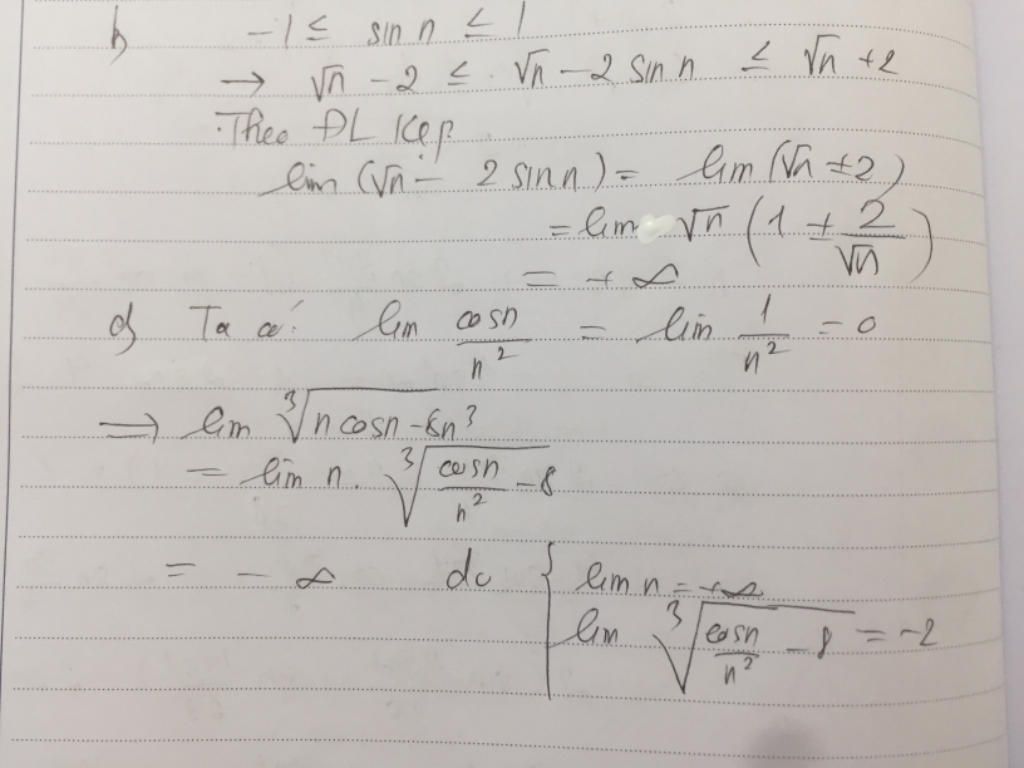 b) -1 ≤ sin n ≤ 1
→ √n - 2 ≤ √n - 2 sin n ≤ √n + 2
Theo ĐL Kẹp
lim (√n - 2 sin n) = lim (√n ± 2)
= lim √n (1 ± 2/√n)
= + ∞
d) Ta có: lim cosn/n² = lim 1/n² = 0
⇒ lim ∛(n cosn - 8n³)
= lim n. ∛(cosn/n² - 8)
= - ∞ do { lim n = +∞
lim ∛(cosn/n² - 8) = -2